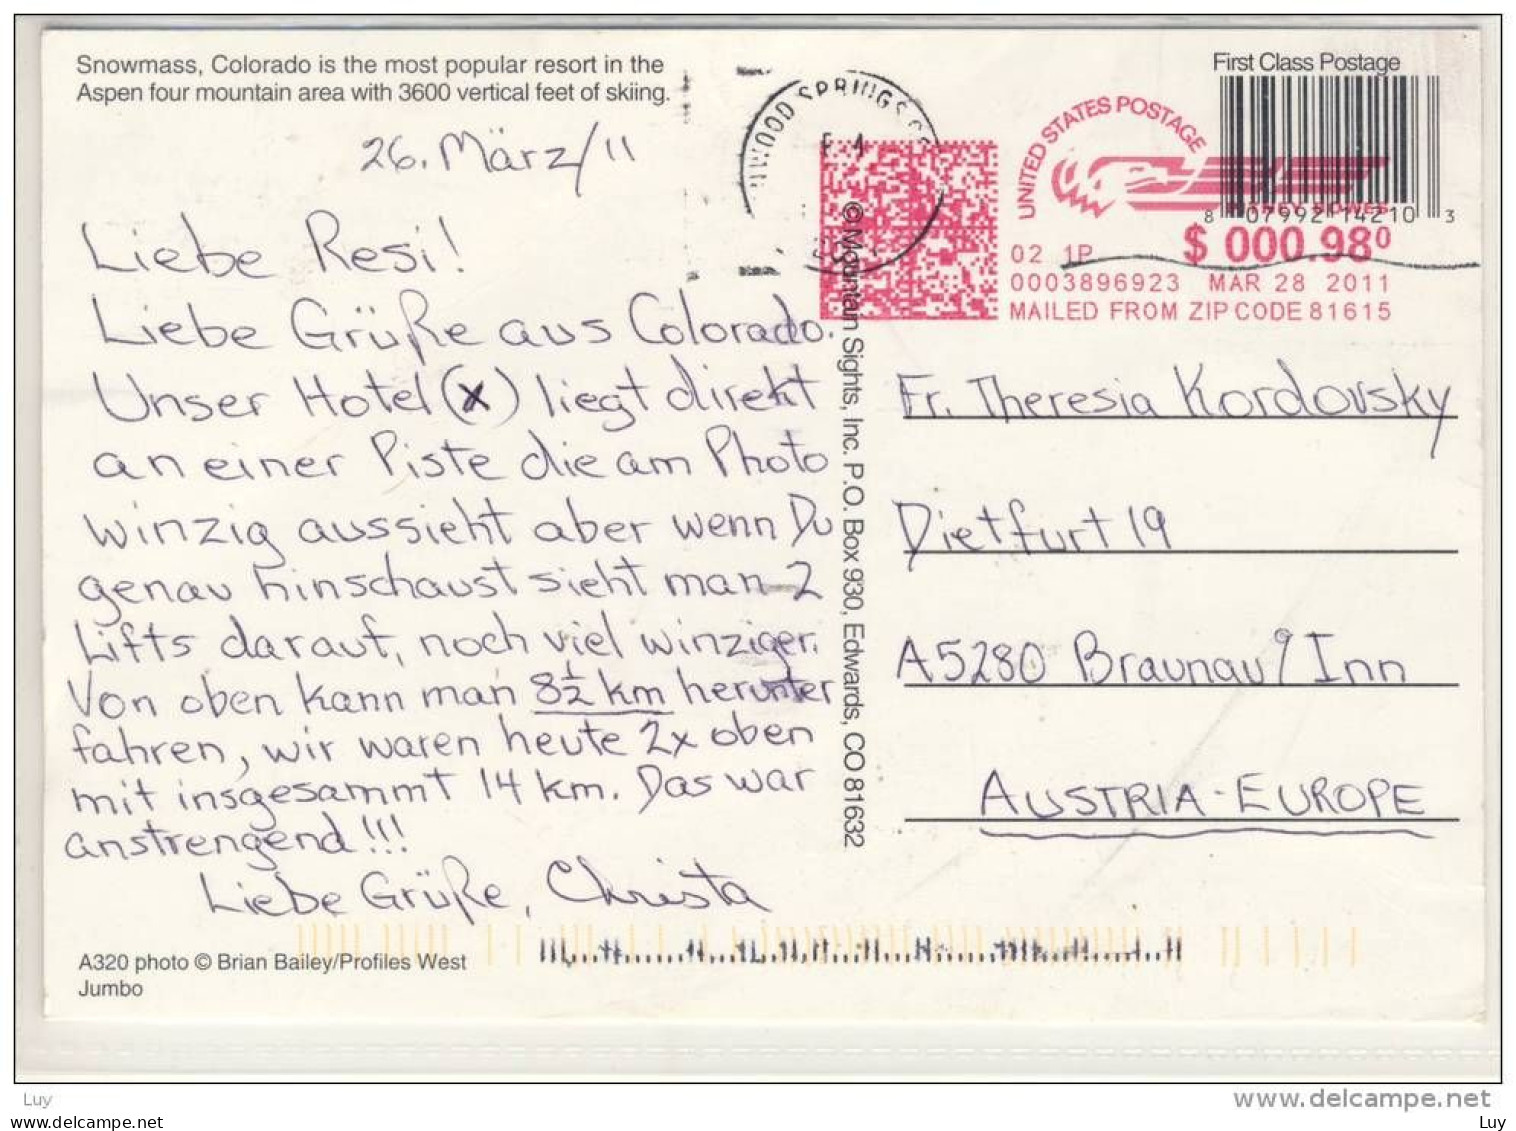 Snowmass, Colorado is the most popular resort in the
Aspen four mountain area with 3600 vertical feet of skiing.
26. März/11
Liebe Resi!
Liebe Grüße aus Colorado.
Unser Hotel (x) liegt direkt
an einer Piste die am Photo
winzig aussieht aber wenn Du
genau hinschaust sieht man 2
Lifts darauf, noch viel winziger.
Von oben kann man 8½ km herunter
fahren, wir waren heute 2x oben
mit insgesammt 14 km. Das war
anstrengend!!!
Liebe Grüße, Christa
A320 photo © Brian Bailey/Profiles West
Jumbo
© Mountain Sights, Inc. P.O. Box 930, Edwards, CO 81632
WOOD SPRINGS
First Class Postage
UNITED STATES POSTAGE
8 07992 14210 3
$ 000.98⁰
02 1P
0003896923 MAR 28 2011
MAILED FROM ZIP CODE 81615
Fr. Theresia Kordovsky
Dietfurt 19
A5280 Braunau/Inn
AUSTRIA-EUROPE
Luy
www.delcampe.net
papersatellite@gmx.net
Luy